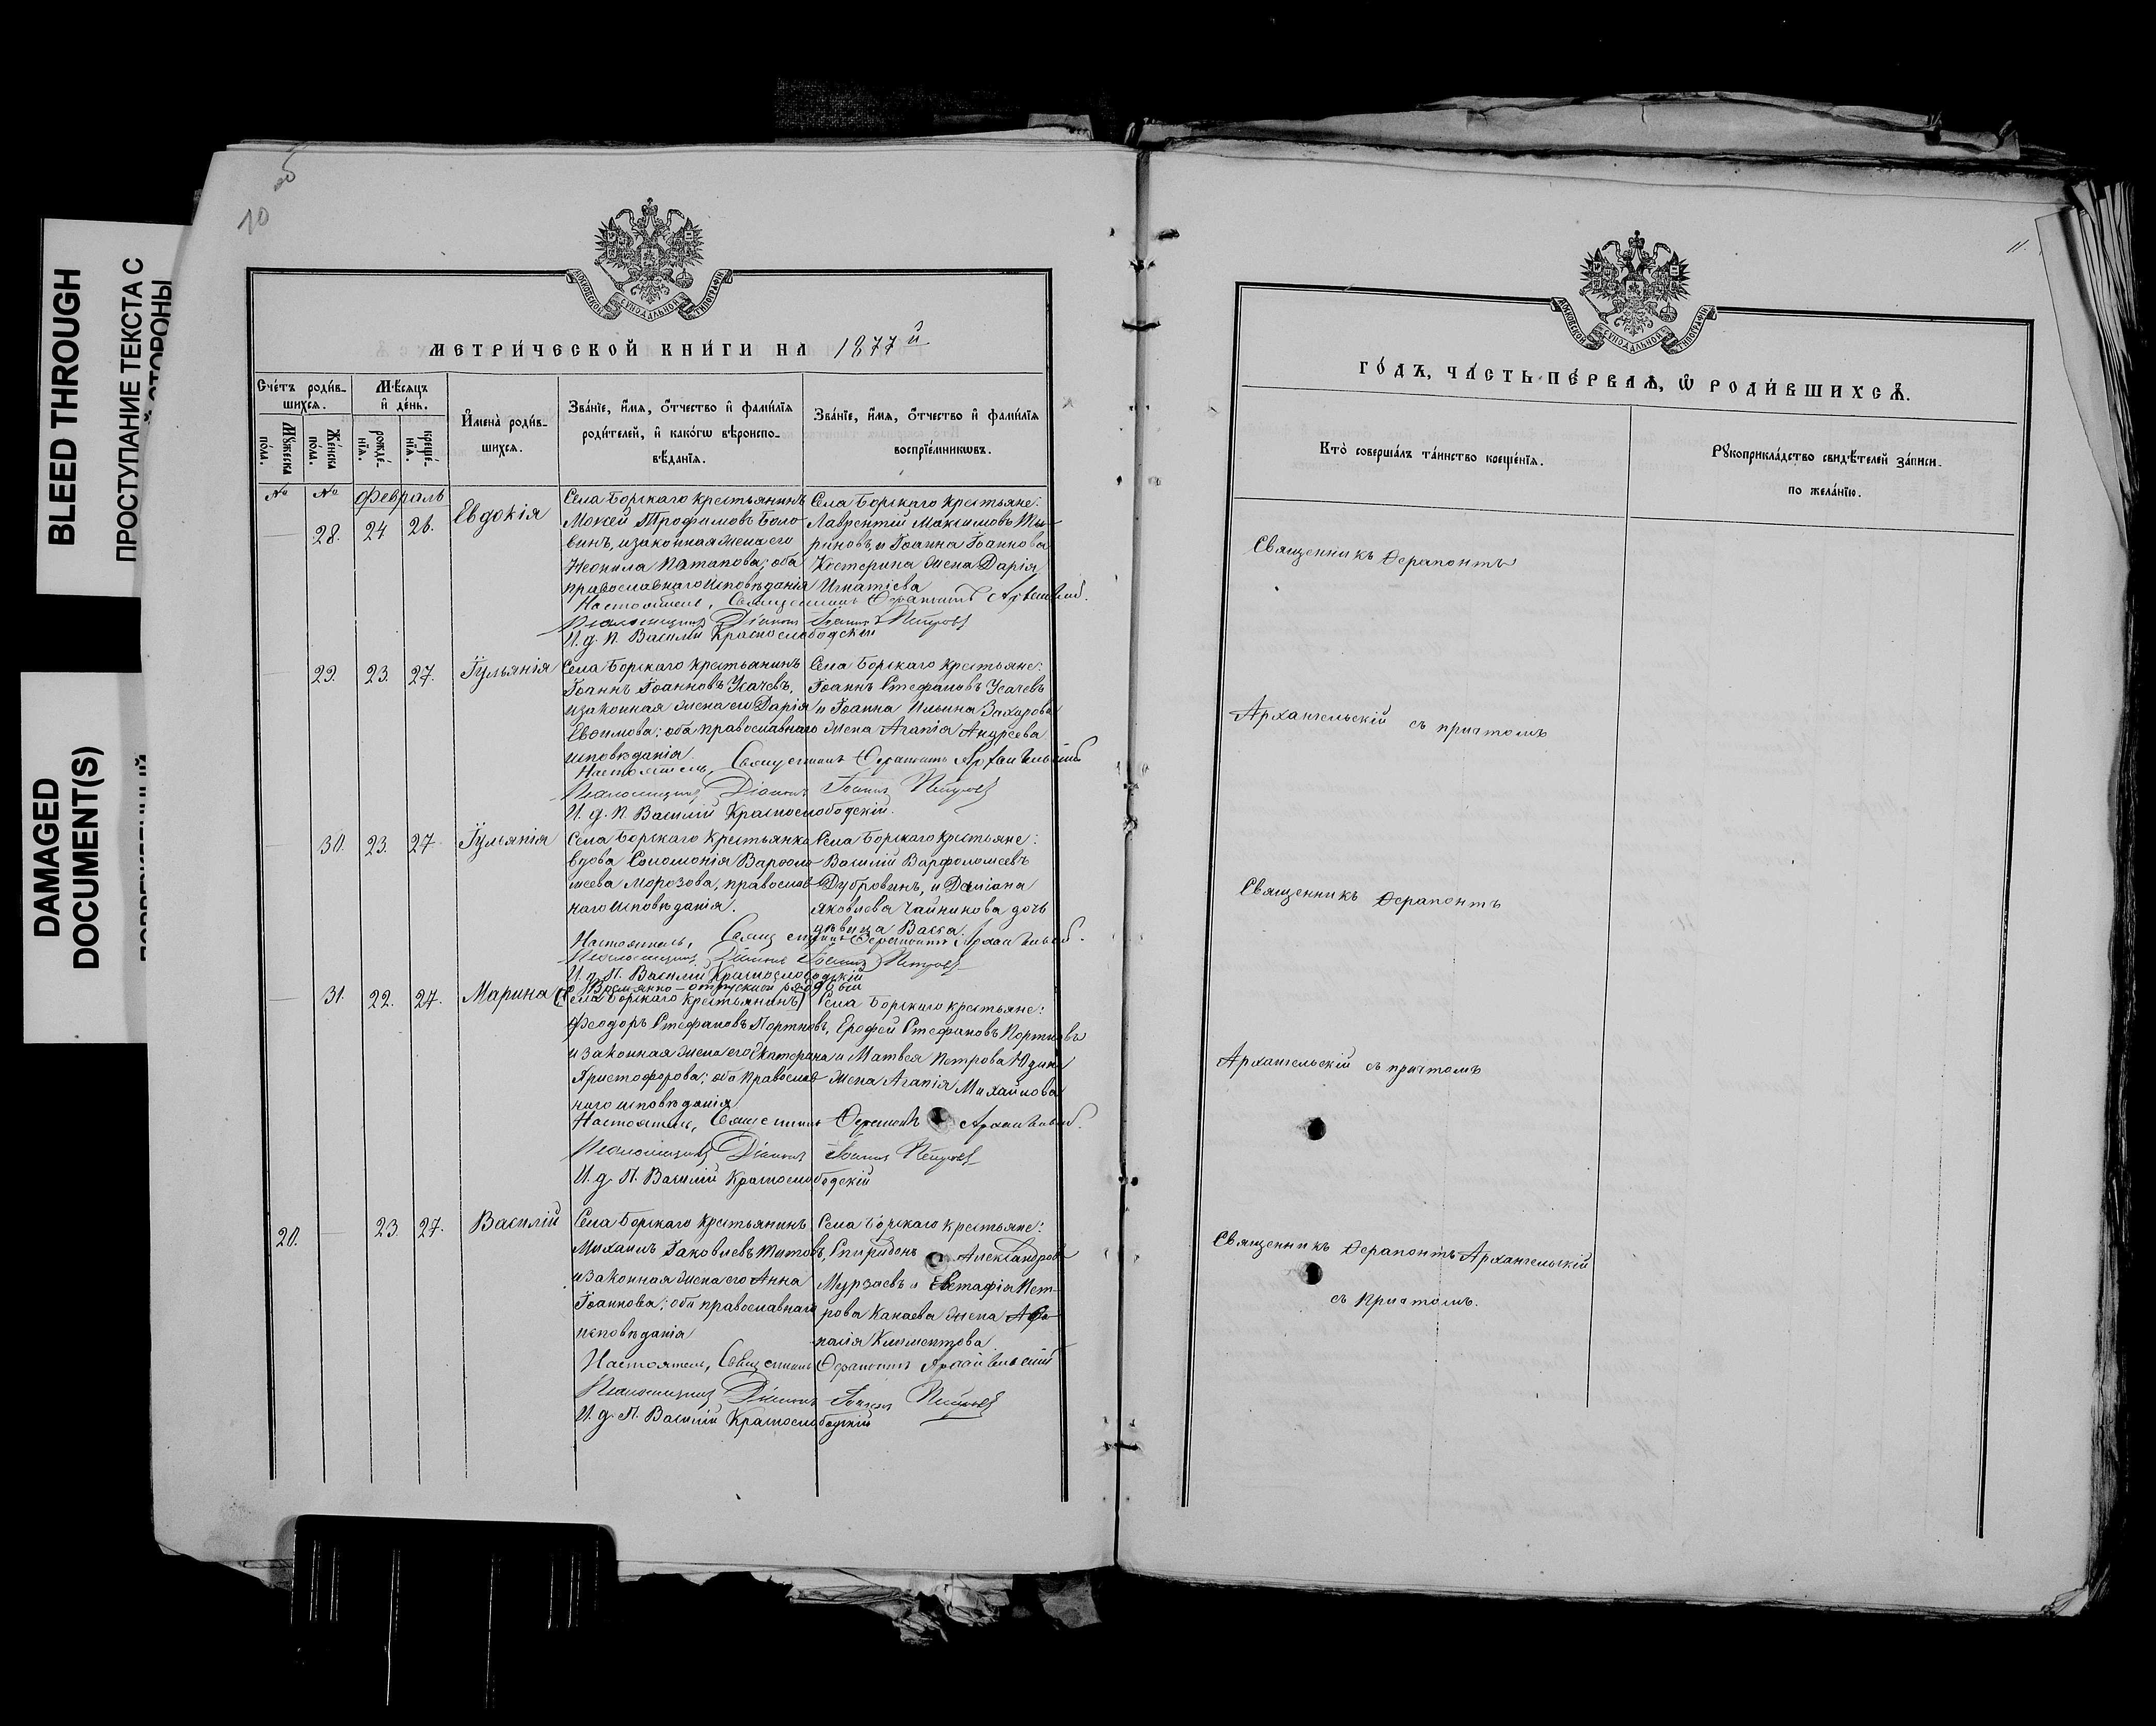 BLEED THROUGH
ПРОСТУПАНИЕ ТЕКСТА С
DAMAGED
DOCUMENT(S)
10
11.
МОСКОВСКОЙ СѴНОДАЛЬНОЙ ТИПОГРАФІИ
МЕТРИ́ЧЕСКОЙ КНИ́ГИ НА 1877й
Сче́тъ роди́в-
шихся.
Мѣ́сяцъ
и҆ де́нь.
И҆мена̀ роди́в-
шихся.
Зва́нїе, и҆́мя, ѻ҆́тчество и҆ фами́лїя
роди́телей, и҆ како́гѡ вѣроиспо-
вѣ́данїя.
Зва́нїе, и҆́мя, ѻ҆́тчество и҆ фами́лїя
воспрїе́мникѡвъ.
Мꙋ́жеска
по́ла.
Же́нска
по́ла.
рожде́-
нїя.
креще́-
нїя.
№ № Февраль
— 28. 24 26. Евдокія
Села Борскаго крестьянинъ
Моисей Трофимовъ Боло-
винъ, и законная жена его
Неонила Потапова; оба
православнаго исповѣданія
Села Борскаго крестьяне:
Лаврентій Максимовъ Ты-
риновъ, и Іоанна Іоаннова
Костерина жена Дарія
Игнатіева
Настоятель, Священникъ Ѳерапонтъ Архангельскій.
Псаломщикъ Діаконъ Іоаннъ Петровъ
И. д. П. Василій Краснослободскій
— 29. 23. 27. Іульянія
Села Борскаго крестьянинъ
Іоаннъ Іоанновъ Усачевъ,
и законная жена его Дарія
Евѳимова; оба православнаго
исповѣданія.
Села Борскаго крестьяне:
Іоаннъ Стефановъ Усачевъ
и Іоанна Ильина Захарова
жена Агапія Андреева
Настоятель, Священникъ Ѳерапонтъ Архангельскій
Псаломщикъ Діаконъ Іоаннъ Петровъ
И. д. П. Василій Краснослободскій.
— 30. 23. 27. Іульянія
Села Борскаго крестьянка
вдова Соломонія Варѳоло-
меева Морозова, православ-
наго исповѣданія.
Села Борскаго крестьяне:
Василій Варфоломеевъ
Дубровинъ, и Даміана
Яковлева Чайникова дочь
дѣвица Васса.
Настоятель, Священникъ Ѳерапонтъ Архангельскій.
Псаломщикъ Діаконъ Іоаннъ Петровъ
И. д. П. Василій Краснослободскій
— 31. 22. 27. Марина
Временно-отпускной рядовой
Села Борскаго крестьянинъ
Феодоръ Стефановъ Портновъ,
и законная жена его Екатерина
Христофорова; оба православ-
наго исповѣданія
Села Борскаго крестьяне:
Ерофей Стефановъ Портновъ
и Матвея Петрова Юдина
жена Агапія Михайлова
Настоятель, Священникъ Ѳерапонтъ Архангельскій.
Псаломщикъ Діаконъ Іоаннъ Петровъ
И. д. П. Василій Краснослободскій
20. — 23. 27. Василій
Села Борскаго крестьянинъ
Михаилъ Іаковлевъ Титовъ,
и законная жена его Анна
Іоаннова; оба православнаго
исповѣданія
Села Борскаго крестьяне:
Спиридонъ Александровъ
Мурзаевъ и Евстафія Пет-
рова Канаева жена Афа-
насія Климентова.
Настоятель, Священникъ Ѳерапонтъ Архангельскій
Псаломщикъ Діаконъ Іоаннъ Петровъ
И. д. П. Василій Краснослободскій
МОСКОВСКОЙ СѴНОДАЛЬНОЙ ТИПОГРАФІИ
ГО́ДЪ, ЧА́СТЬ ПЕ́РВАѦ, Ѡ҆ РОДИ́ВШИХСѦ.
Кто̀ соверша́лъ та́инство креще́нїя.
Рꙋкоприкла́дство свидѣ́телей за́писи.
по жела́нїю.
Священникъ Ѳерапонтъ
Архангельскій съ причтомъ
Священникъ Ѳерапонтъ
Архангельскій съ причтомъ
Священникъ Ѳерапонтъ Архангельскій
съ причтомъ.